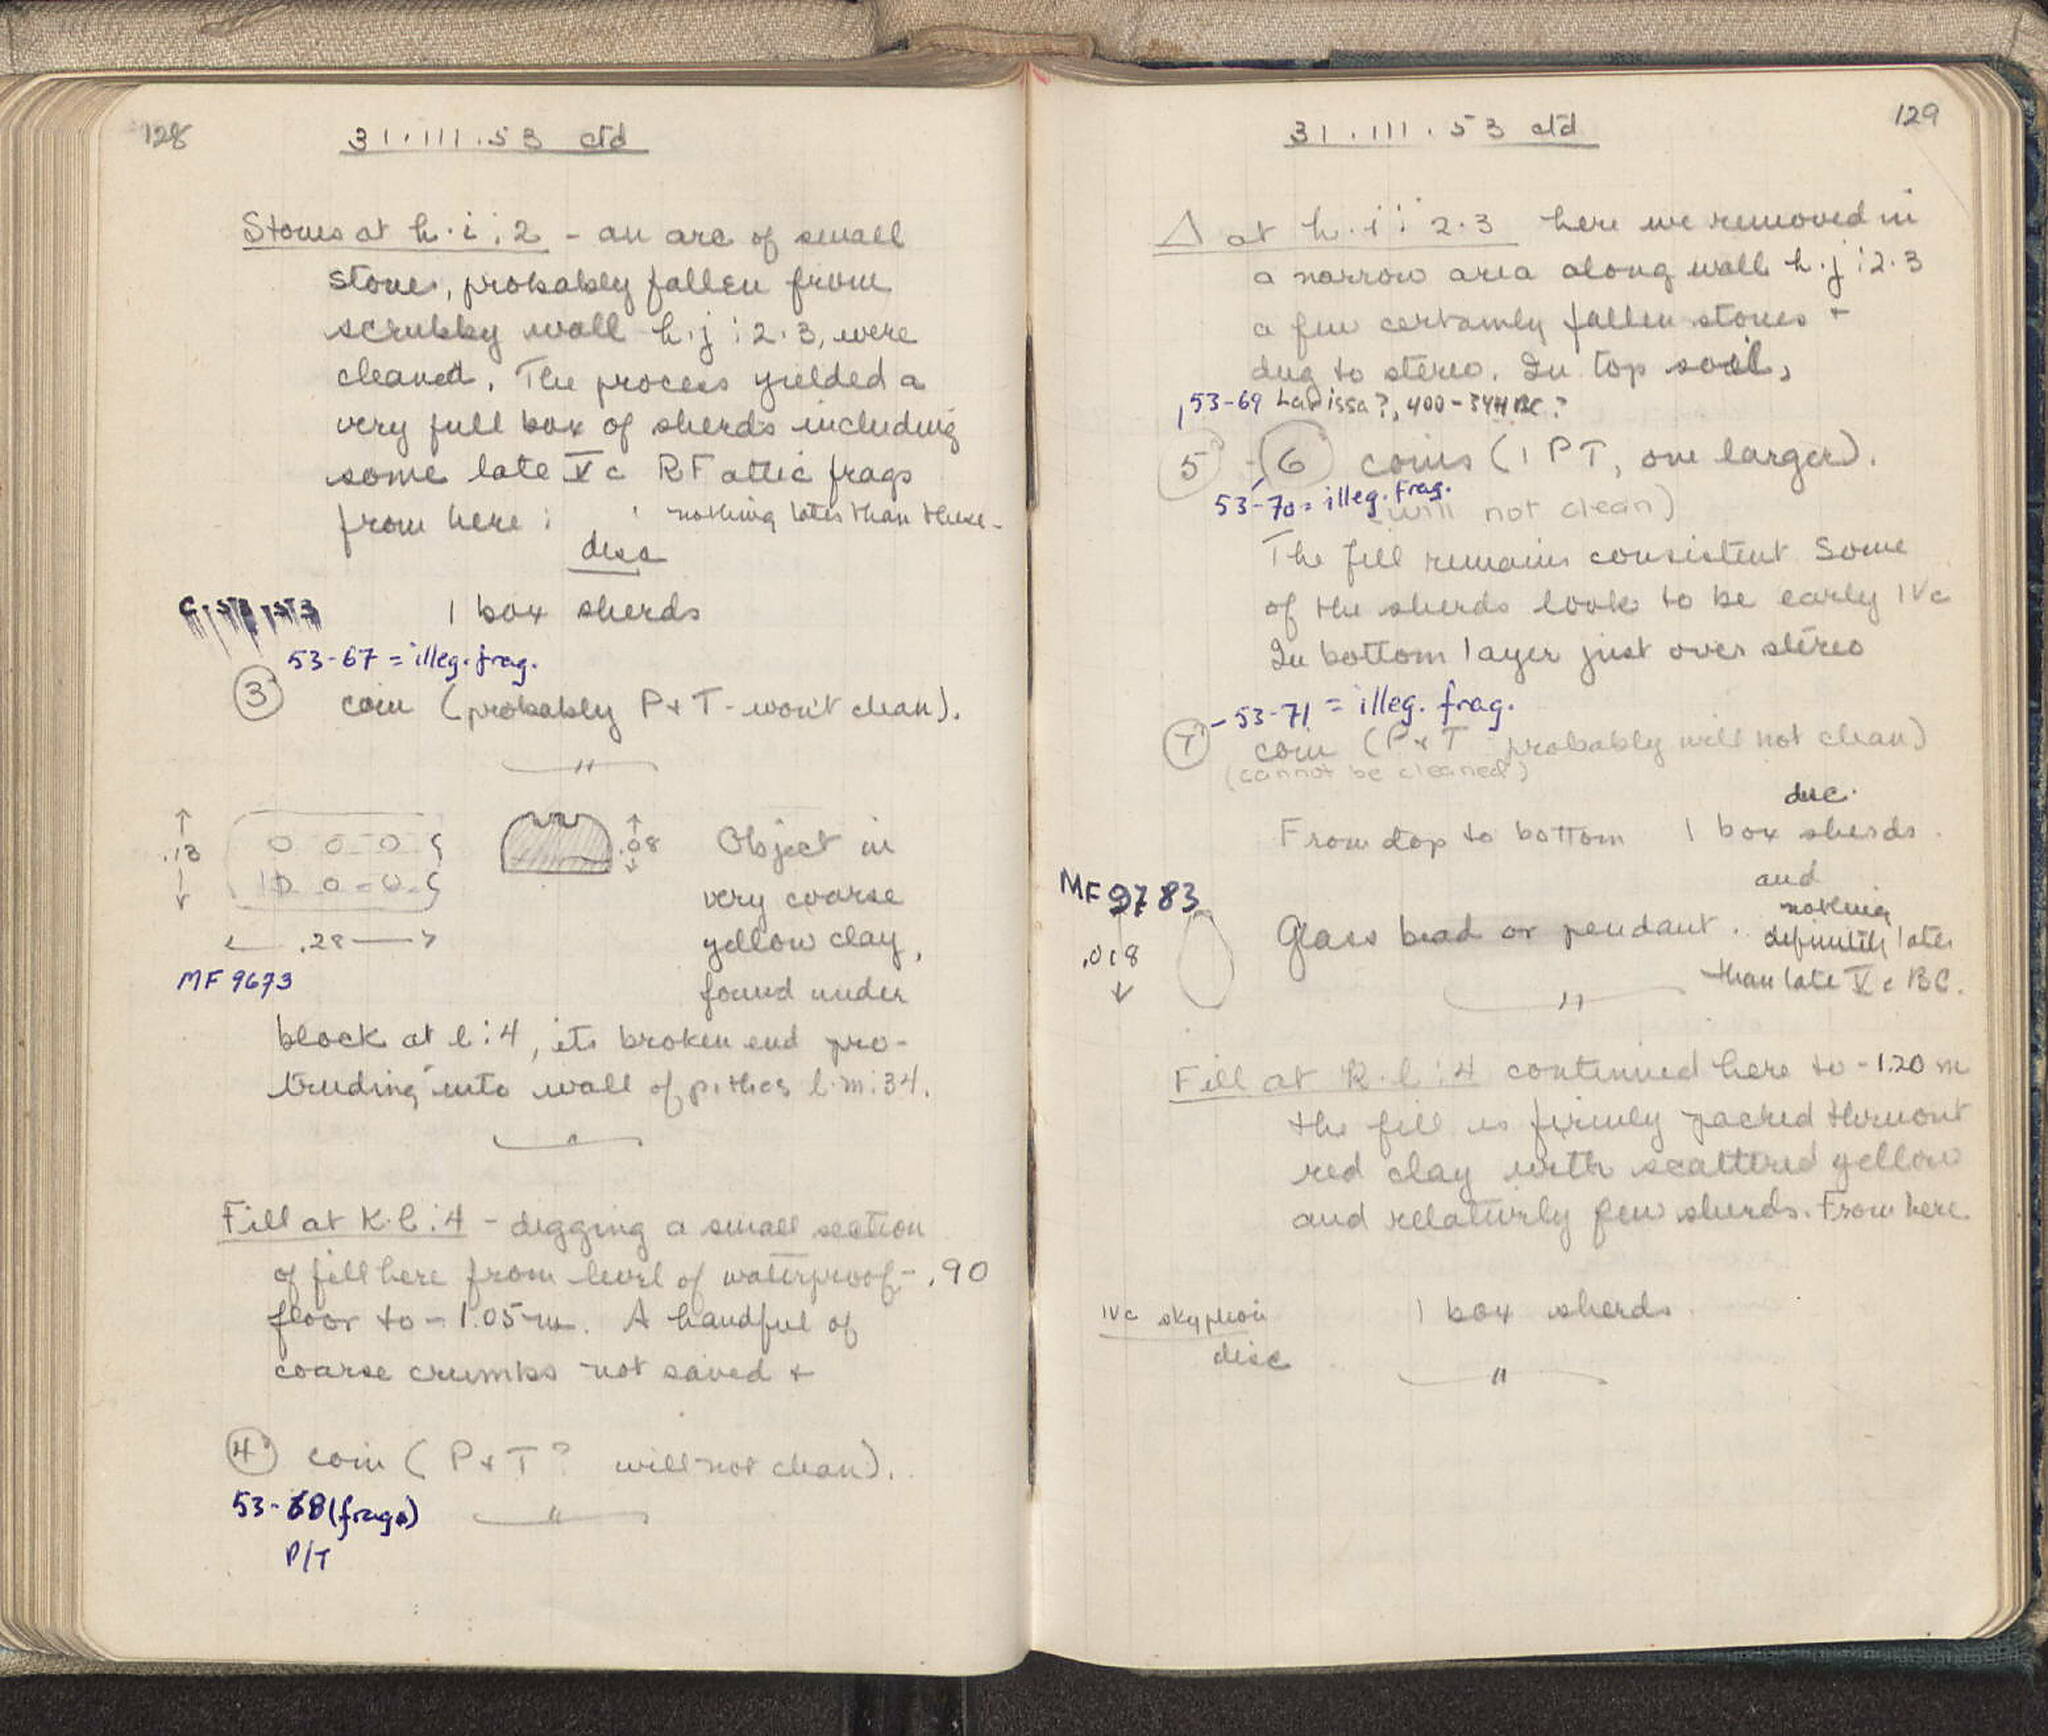 128
31.III.53 ctd
Stones at h.i:2 - an arc of small
stones, probably fallen from
scrubby wall h.j:2.3, were
cleaned. The process yielded a
very full box of sherds including
some late V c RF attic frags
from here: nothing later than these -
disc
1 box sherds
53-67 = illeg. frag.
3 coin (probably P & T - won't clean).
"
.13
.08
Object in
very coarse
.28
yellow clay,
MF 9673
found under
block at l:4, its broken end pro-
truding into wall of pithos l.m:34.
Fill at K.l:4 - digging a small section
of fill here from level of waterproof - .90
floor to - 1.05 m. A handful of
coarse crumbs not saved +
4 coin (P & T? will not clean).
53-68 (frags)
P/T
"
129
31.III.53 ctd
Δ at h.i:2.3 here we removed in
a narrow area along wall h.j:2.3
a few certainly fallen stones +
dug to stereo. In top soil,
53-69 Larissa?, 400-344 BC?
5 - 6 coins (1 PT, one larger).
53-70 = illeg. frag.
(will not clean)
The fill remains consistent Some
of the sherds look to be early IVc
In bottom layer just over stereo
- 53-71 = illeg. frag.
7 coin (P & T probably will not clean)
(cannot be cleaned)
disc.
From top to bottom 1 box sherds.
and
MF 9783
nothing
Glass bead or pendant.
definitely later
.018
than late V c BC.
"
Fill at K.l:4 continued here to - 1.20 m
the fill is firmly packed
red clay with scattered yellow
and relatively few sherds. From here
IVc skyphoi
1 box sherds.
disc
"